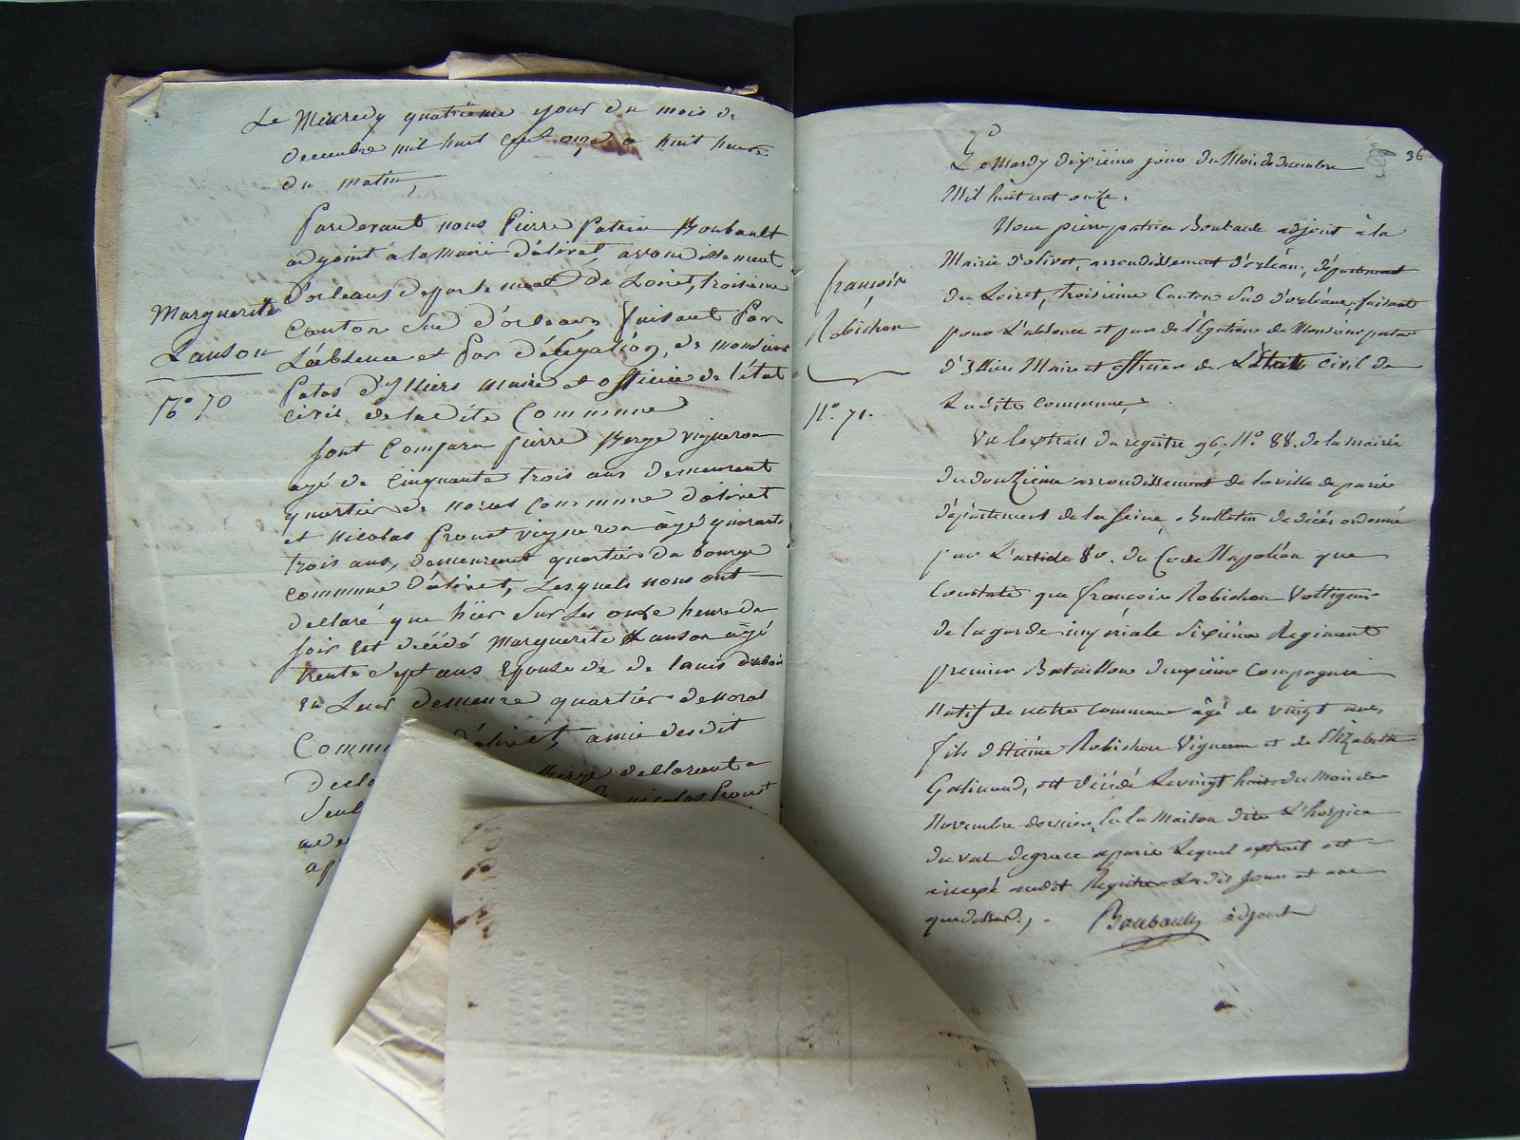 Le Mécredy quatrième jour du mois de
decembre mil huit cent onze a huit heure
du matin,
Pardevant nous Pierre Patrin Boubault
adjoint à la mairie d'olivet, arrondissement
D'orleans departement du Loiret, troisieme
Canton sud d'orleans faisant Par
L'absence et par délégation, de monsieur
Patas d'Illiers maire et officier de l'état
civil de ladite Commune
Marguerite
Lanson
No 70
sont Comparu pierre Berge vigneron
agé de cinquante trois ans demeurant
quartier de noras commune d'olivet
et nicolas Proust vigneron âgé quarante
trois ans, demeurant quartier du bourge
commune d'olivet, Lesquels nous ont
declaré que hier sur les onze heure du
soir est décédé Marguerite Lanson âgé
trente sept ans Epouse de de louis
en Leur demeure quartier de noras
Comm d'olivet, amie desdit
decla Berge declarant
seul nicolas Proust
96
Le Mardy dixième jour du Mois de decembre
Mil huit cent onze.
Nous pierre patrin Boubault adjoint à la
Mairie d'olivet, arrondissement d'orléans, département
du Loiret, troisième Canton sud d'orléans, faisant
pour L'absence et par délégation de Monsieur patas
d'Illiers Maire et officier de L'état Civil de
Ladite Commune,
françois
Robichon
No. 71.
Vu l'extrait du registre 96, No 88. de la mairie
du douzième arrondissement de la ville de paris
département de la seine, Bulletin de décés ordonné
par L'article 80. du Code Napoléon que
Constate que françois Robichon Voltigeur
de la garde impériale sixième Regiment
premier Bataillon deuxième Compagnie
Natif de notre commune âgé de vingt ans,
fils d'Etiéne Robichon Vigneron et de Elizabeth
Galinand, est décédé Le vingt huit du Mois de
Novembre dernier, en la Maison dite L'hospice
du val de grace a paris Lequel extrait est
annexé audit Registre Lesdit jour et an
que dessus.
Boubault adjoint